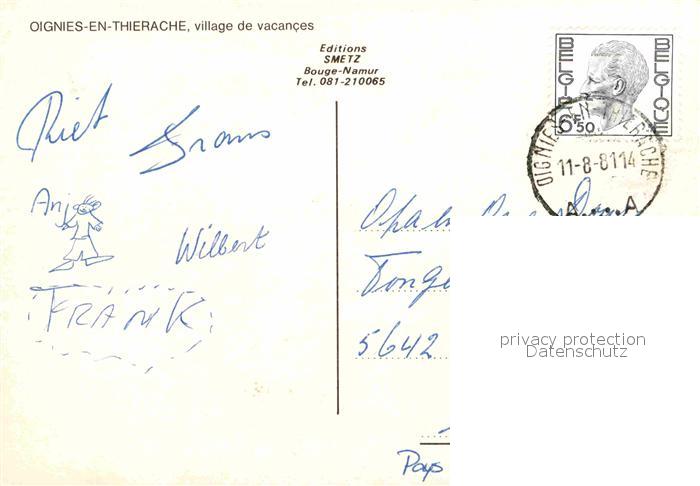 OIGNIES-EN-THIERACHE, village de vacançes
Editions
SMETZ
Bouge-Namur
Tel. 081-210065
BELGIE
BELGIQUE
6F50
OIGNIES EN THIERACHE
11-8-81 14
A A
Riet
Anja
Wilbert
FRANK
Opa en
Tonge
5642
Pays
privacy protection
Datenschutz